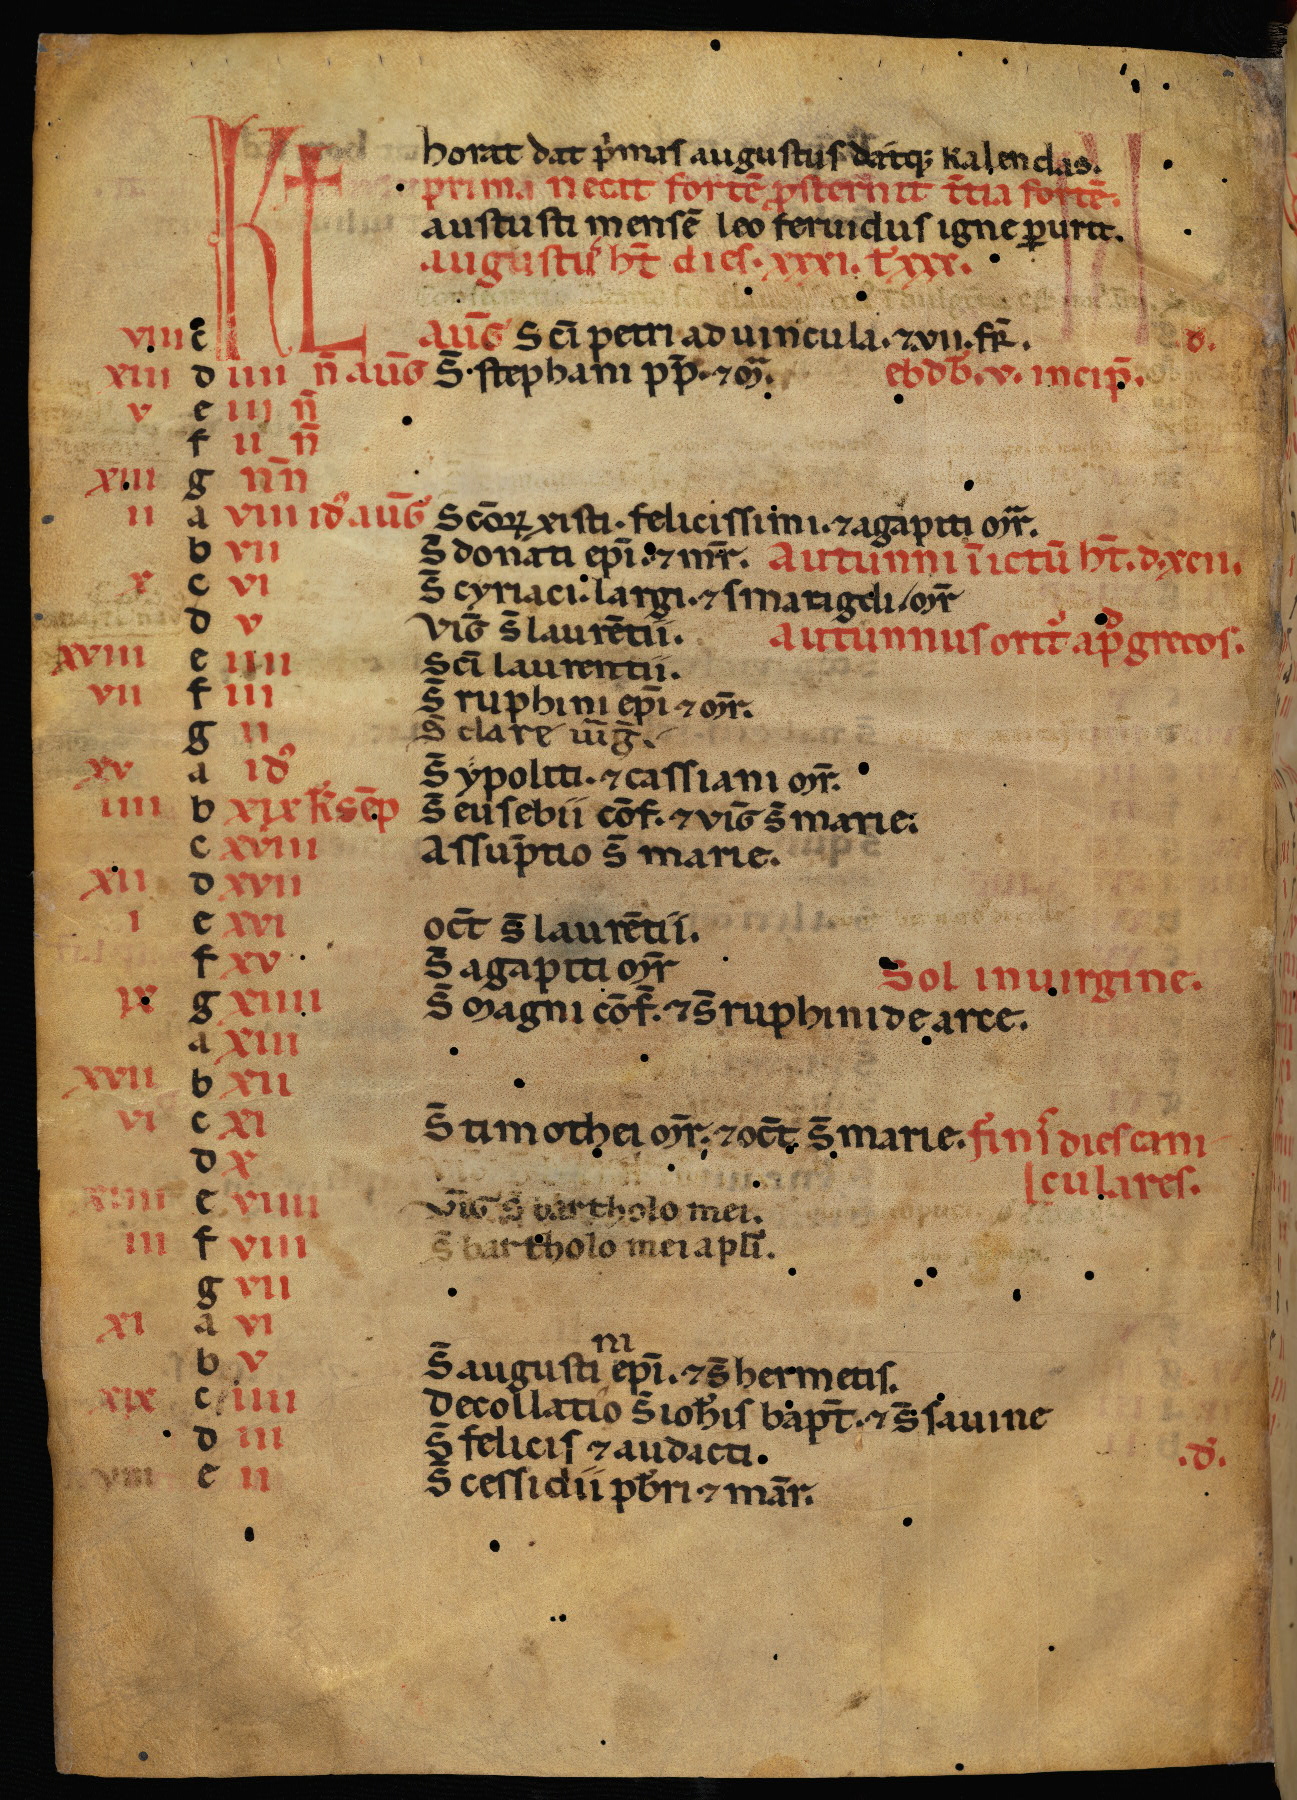 KL horat dat p̄mas augustus datq; kalendas.
prima necat fortē p̄sternit t̄tia fortē.
austusti mensē leo feruidus igne p̱urit.
augustus h̄t dies. xxxi. l' xxx.
viii c Aug̅ Sc̄i petri ad uincula. ⁊ vii. fr̄. .d.
xiii d iiii n̄ aug̅ S̄. stephani pp̄. ⁊ m̄r. ebd̄b. v. incip̄.
v e iii n̄
f ii n̄
xiii g n̄n
ii a viii id' aug̅ Scōꝝ xisti. felicissimi. ⁊ agapiti m̄r.
b vii S̄ donati ep̄i. ⁊ m̄r. Autunni īictū h̄t. d. xcii.
x c vi S̄ cyriaci. largi. ⁊ smaragdi. m̄r
d v vig̅ S̄ laurētii. autunnus orit' ap' grecos.
xviii e iiii Sc̄i laurentii.
vii f iii S̄ ruphini ep̄i ⁊ m̄r.
g ii S̄ clare uīg̅.
xv a id' S̄ ypoliti. ⁊ cassiani m̄r.
iiii b xix k̄ sēp S̄ eusebii cōf. ⁊ vig̅ S̄ marie.
c xviii Assup̄tio S̄ marie.
xii d xvii
i e xvi oct̄ S̄ laurētii.
f xv S̄ agapiti m̄r Sol in uirgine.
ix g xiiii S̄ magni cōf̄. ⁊ S̄ ruphini de arce.
a xiii
xvii b xii
vi c xi S̄ timothei m̄r. ⁊ oct̄ S̄ marie. finis dies cani
d x culares.
xiiii e viiii vig̅ S̄ bartholomei.
iii f viii S̄ bartholomei apl̄i.
g vii
xi a vi
ni
b v S̄ augusti ep̄i. ⁊ S̄ hermetis.
xix c iiii Decollatio S̄ ioh̄is bapt̄. ⁊ S̄ sauine
d iii S̄ felicis ⁊ audacti. .d'.
viii e ii S̄ cessidii pb̄ri ⁊ mār.